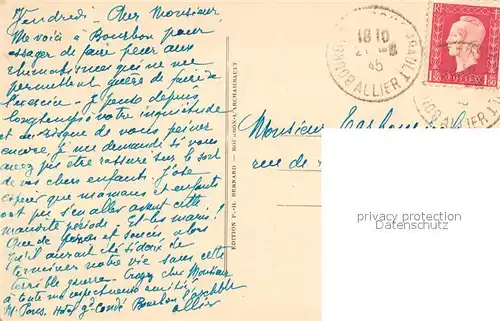 Vendredi - Cher Monsieur,
Me voici à Bourbon pour
essayer de faire peur aux
rhumatismes qui ne me
permettent guère de faire
l'exercice - Je partage depuis
longtemps votre inquiétude
et au risque de vous peiner
encore, je me demande si vous
avez pu être rassuré sur le sort
de vos chers enfants. J'ose
espérer que mamans et enfants
ont pu s'en aller avant cette
maudite période. Et les maris!
Que de peines et soucis, alors
qu'il aurait été si doux de
terminer notre vie sans cette
terrible guerre - Croyez cher Monsieur
à toute ma respectueuse amitié
M. Hotel Gd Condé Bourbon l'Archblt
Allier
EDITION P.-H. BERNARD - BOURBON-L'ARCHAMBAULT
18 10
45
ALLIER
Monsieur
rue de
property protection
Datenschutz